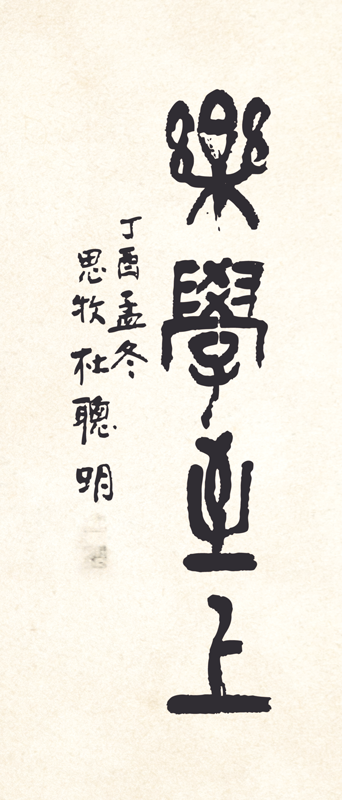 樂學至上
丁酉孟冬
思牧杜聰明